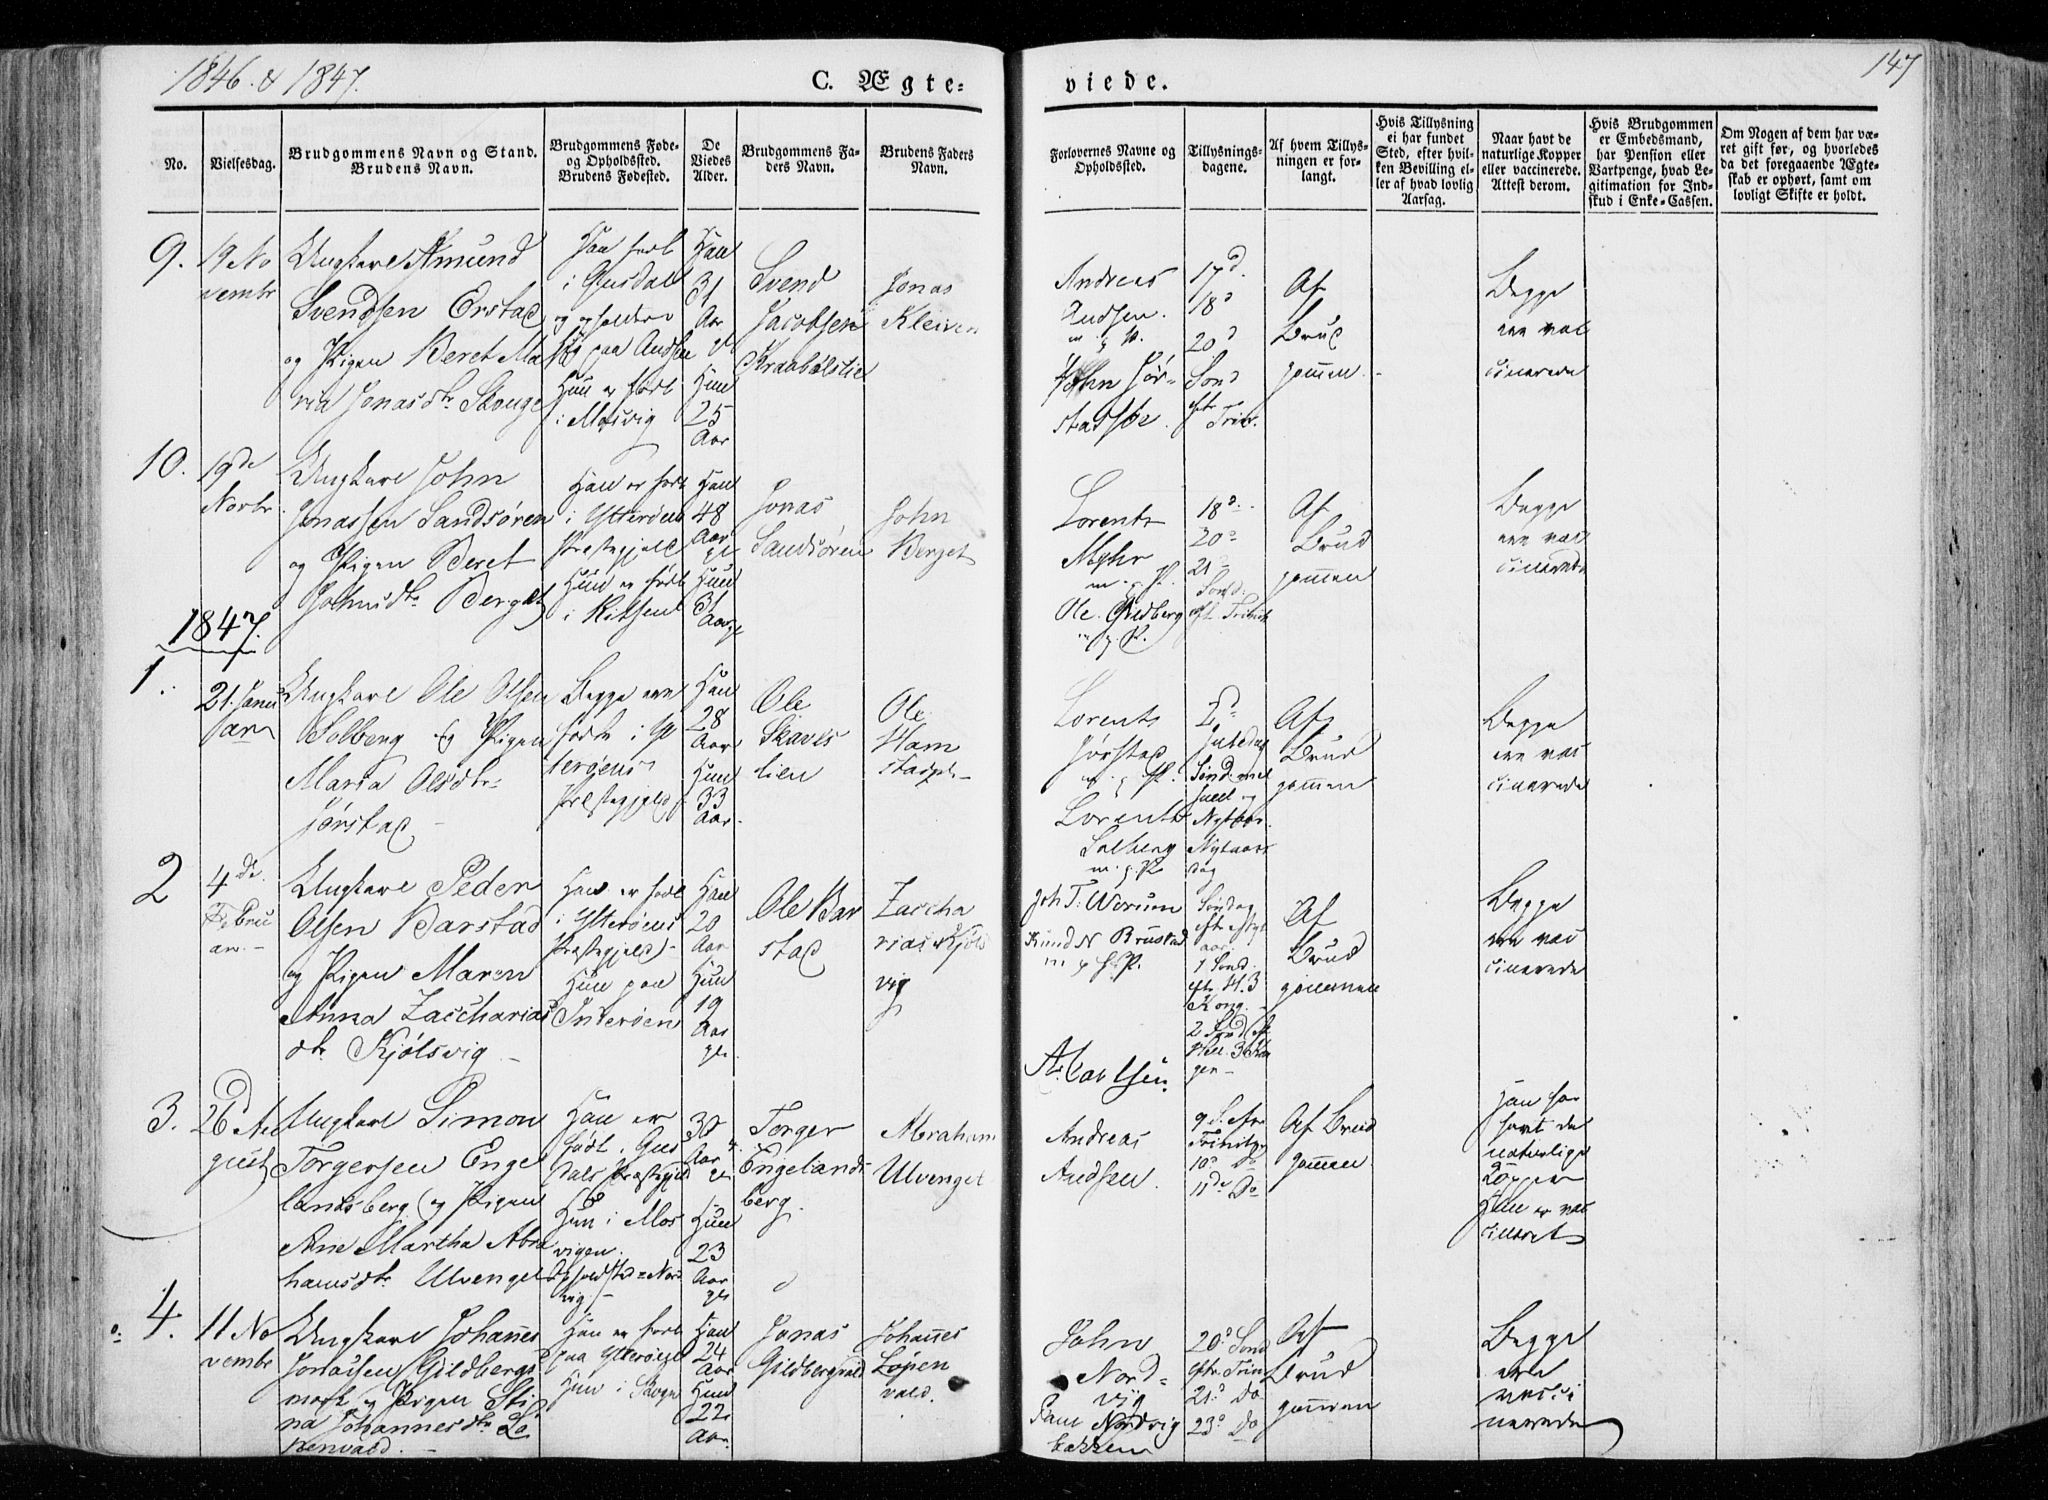 1846. & 1847.
C. Ægte-
viede.
147
No.
Vielsesdag.
Brudgommens Navn og Stand.
Brudens Navn.
Brudgommens Føde-
og Opholdssted.
Brudens Fødested.
De
Viedes
Alder.
Brudgommens Fa-
ders Navn.
Brudens Faders
Navn.
Forlovernes Navne og
Opholdssted.
Tillysnings-
dagene.
Af hvem Tillys-
ningen er for-
langt.
Hvis Tillysning
ei har fundet
Sted, efter hvil-
ken Bevilling el-
ler af hvad lovlig
Aarsag.
Naar havt de
naturlige Kopper
eller vaccinerede.
Attest derom.
Hvis Brudgommen
er Embedsmand,
har Pension eller
Vartpenge, hvad Le-
gitimation for Ind-
skud i Enke-Cassen.
Om Nogen af dem har væ-
ret gift før, og hvorledes
da det foregaaende Ægte-
skab er ophørt, samt om
lovligt Skifte er holdt.
9.
19 No
vembr
Ungkarl Amund
Svendsen Erstad
og Pigen Beret Ma
ria Jonasdtr Skouge
Han født
i Gusdal
og opholder
sig paa
Hun er født
i Mosvig
Han
31
Aar
Hun
25
Aar
Svend
Jacobsen
Kraabølstie
Jonas
Kleiven
Andreas
Andsen.
John Jør-
stad
17d.
18d
20d
Sønd
eftr
Trin.
Af
Brud
gommen
Begge
ere vac
cinerede
10.
19de
Novbr.
Ungkarl John
Jonassen Sandsøren
og Pigen Beret
Johnsdtr Berget
Han er født
i Ytterøens
Præstegjeld
Hun er født
i
Han
48
Aar
gl
Hun
31
Aar gl
Jonas
Sandsøren
John
Berget
Lorents
Myhr
m. p. P.
Ole Gildberg
m. p. P.
18d
20d
21
Sønd.
eft. Trinit
Af
Brud
gommen
Begge
ere vac
cinerede
1847.
1.
21. Janu
ar
Ungkarl Ole Olsen
Solberg og Pigen
Maria Olsdtr
Jørstad
Begge ere
født i Yt
terøens
Præstegjeld
Han
28
Aar
Hun
33
Aar
Ole
Skaves
lien
Ole
Ham
Lorents
Jørstad
m. p. P.
Lorents
Solberg
m. p. P.
2d
Juledag
Sønd. mel
Juel og
Nytaar.
Nytaars
dag
Af
Brud
gommen
Begge
ere vac
cinerede
2
4de.
Febru
ar.
Ungkarl Peder
Olsen Barstad
og Pigen Maren
Anna Zaccharias
dtr Kjølsvig
Han er født
i Ytterøens
Præstegjeld
Hun paa
Inderøen
Han
20
Aar
Hun
19
Aar
gl.
Ole Bar
stad
Zaccha
rias Kjøls
vig
Joh T. Werum
Knud N Brustad
m p P.
Søndag
eftr Nyt
aar
1 Sønd.
eftr H. 3
Kong.
2 Sønd eft
Hell. 3 Kon
ger
Af
Brud
gommen
Begge
ere vac
cinerede
A. Carlsen
3.
26d Au
gust
Ungkarl Simon
Torgersen Enge
landsberg og Pigen
Ane Martha Abra
hamsdtr Ulvenget
Han er
født i Gus
dals Præstegjeld
Hun i Mos
vigen.
Opholdsted Nord
vig
30
Aar
Hun
23
Aar
gl
Torger
Engelands
berg.
Abraham
Ulvenget
Andreas
Andsen.
9 S. eftr
Trinit.
10d Do
11d Do
Af Brud
gommen
Han har
havt de
naturlige
Kopper
Hun er vac
cineret
4.
11 No
vembr
Ungkarl Johannes
Jonassen Gildbergs
mark og Pigen Sti
na Johannesdtr Lø
penvald.
Han er født
paa Ytterøen
Hun i Skogn
Han
24
Aar
Hun
22
Aar
Jonas
Gildbergs
Johannes
Løpen
vald.
John
Nord=
vig
Paul Nordvig
bakken
20d Sønd
eftr Trin
21d Do
23d Do
Af
Brud
gommen
Begge
ere
vacci
nerede